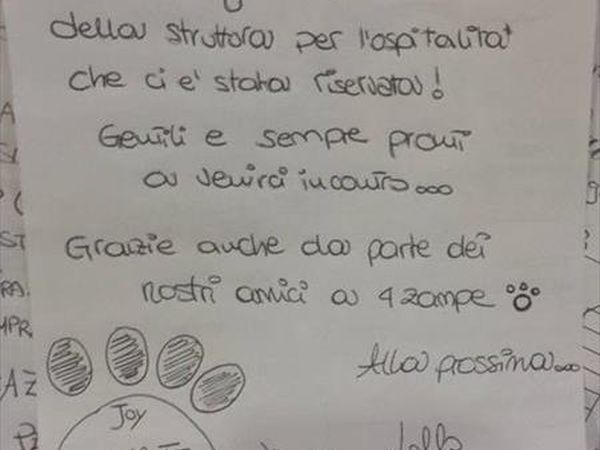 della struttura per l'ospitalità
che ci e' stata riservata!
Gentili e sempre pronti
a venirci incontro...
Grazie anche da parte dei
nostri amici a 4 zampe
Alla prossima...
Joy